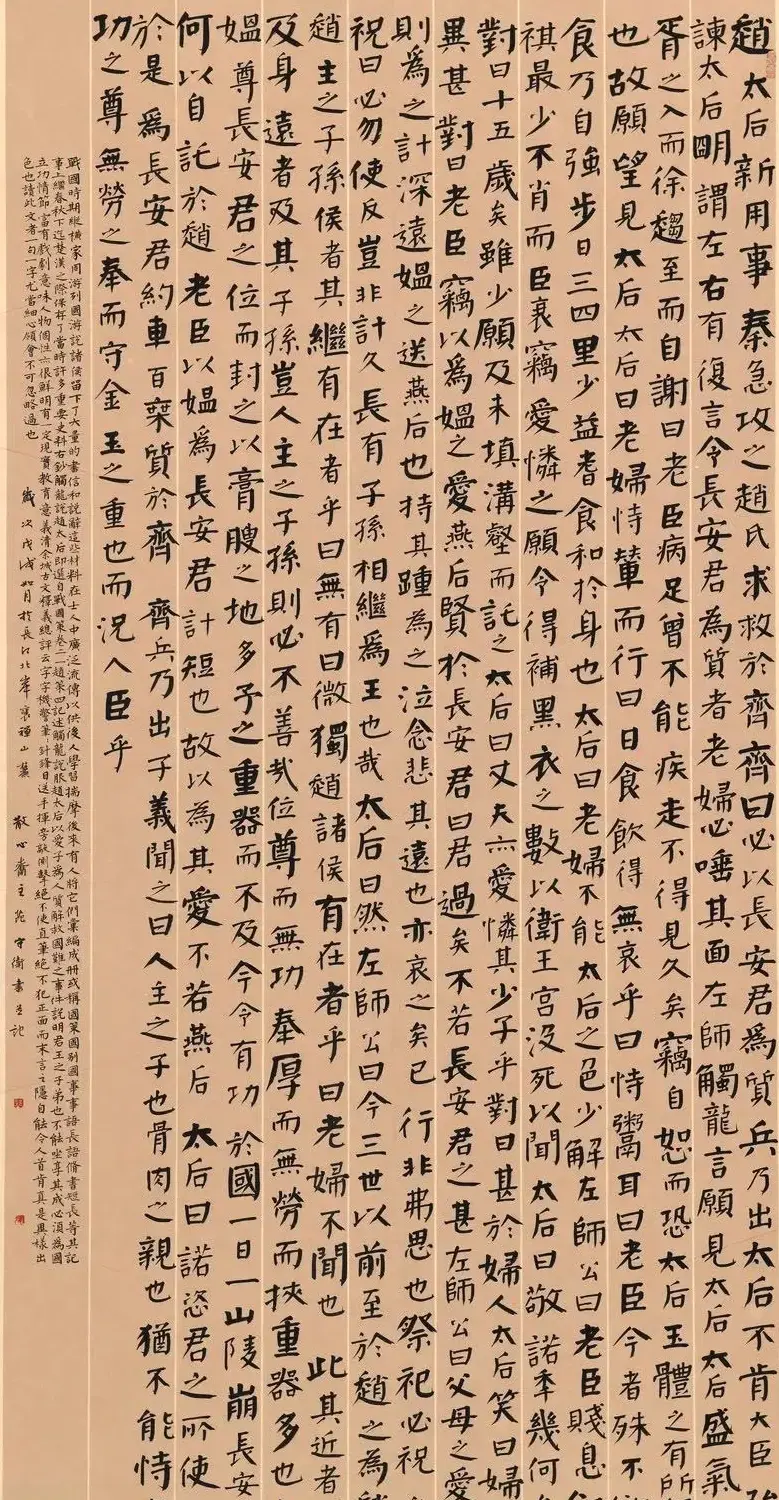 趙太后新用事秦急攻之趙氏求救於齊齊曰必以長安君為質兵乃出太后不肯大臣強
諫太后明謂左右有復言令長安君為質者老婦必唾其面左師觸龍言願見太后太后盛氣
胥之入而徐趨至而自謝曰老臣病足曾不能疾走不得見久矣竊自恕而恐太后玉體之有所
也故願望見太后太后曰老婦恃輦而行曰日食飲得無衰乎曰恃鬻耳曰老臣今者殊不
食乃自強步日三四里少益耆食和於身也太后曰老婦不能太后之色少解左師公曰老臣賤息
祺最少不肖而臣衰竊愛憐之願令得補黑衣之數以衛王宮沒死以聞太后曰敬諾年幾何
對曰十五歲矣雖少願及未填溝壑而託之太后曰丈夫亦愛憐其少子乎對曰甚於婦人太后笑曰婦
異甚對曰老臣竊以為媼之愛燕后賢於長安君曰君過矣不若長安君之甚左師公曰父母之愛
則為之計深遠媼之送燕后也持其踵為之泣念悲其遠也亦哀之矣已行非弗思也祭祀必祝
祝曰必勿使反豈非計久長有子孫相繼為王也哉太后曰然左師公曰今三世以前至於趙之為
趙主之子孫侯者其繼有在者乎曰無有曰微獨趙諸侯有在者乎曰老婦不聞也此其近者
及身遠者及其子孫豈人主之子孫則必不善哉位尊而無功奉厚而無勞而挾重器多也
媼尊長安君之位而封之以膏腴之地多予之重器而不及今令有功於國一旦山陵崩長安
何以自託於趙老臣以媼為長安君計短也故以為其愛不若燕后太后曰諾恣君之所使
於是為長安君約車百乘質於齊齊兵乃出子義聞之曰人主之子也骨肉之親也猶不能恃
功之尊無勞之奉而守金玉之重也而況人臣乎
戰國時期縱橫家周游列國游說諸侯留下了大量的書信和說辭這些材料在士人中廣泛流傳以供後人學習揣摩後來有人將它們彙編成冊或稱國策國別國事事語長語脩書短長等其記
事上繼春秋下迄楚漢之際保存了當時許多重要史料右鈔觸龍說趙太后即選自戰國策卷二一趙策四記述觸龍說服趙太后以愛子為人質解救國難之事件說明君王之子弟也不能坐享其成必須為國
立功情節富有戲劇意味人物個性亦很鮮明有一定現實教育意義清余城古文釋義總評云字字機警筆筆針鋒目送手揮旁敲側擊絕不使直筆絕不犯正面而末言之隱自能令人首肯真是異樣出
色也讀此文者一句一字尤當細心領會不可忽略過也
歲次戊戌如月於長江北岸襄禪山麓 散心齋主範守衛書並記